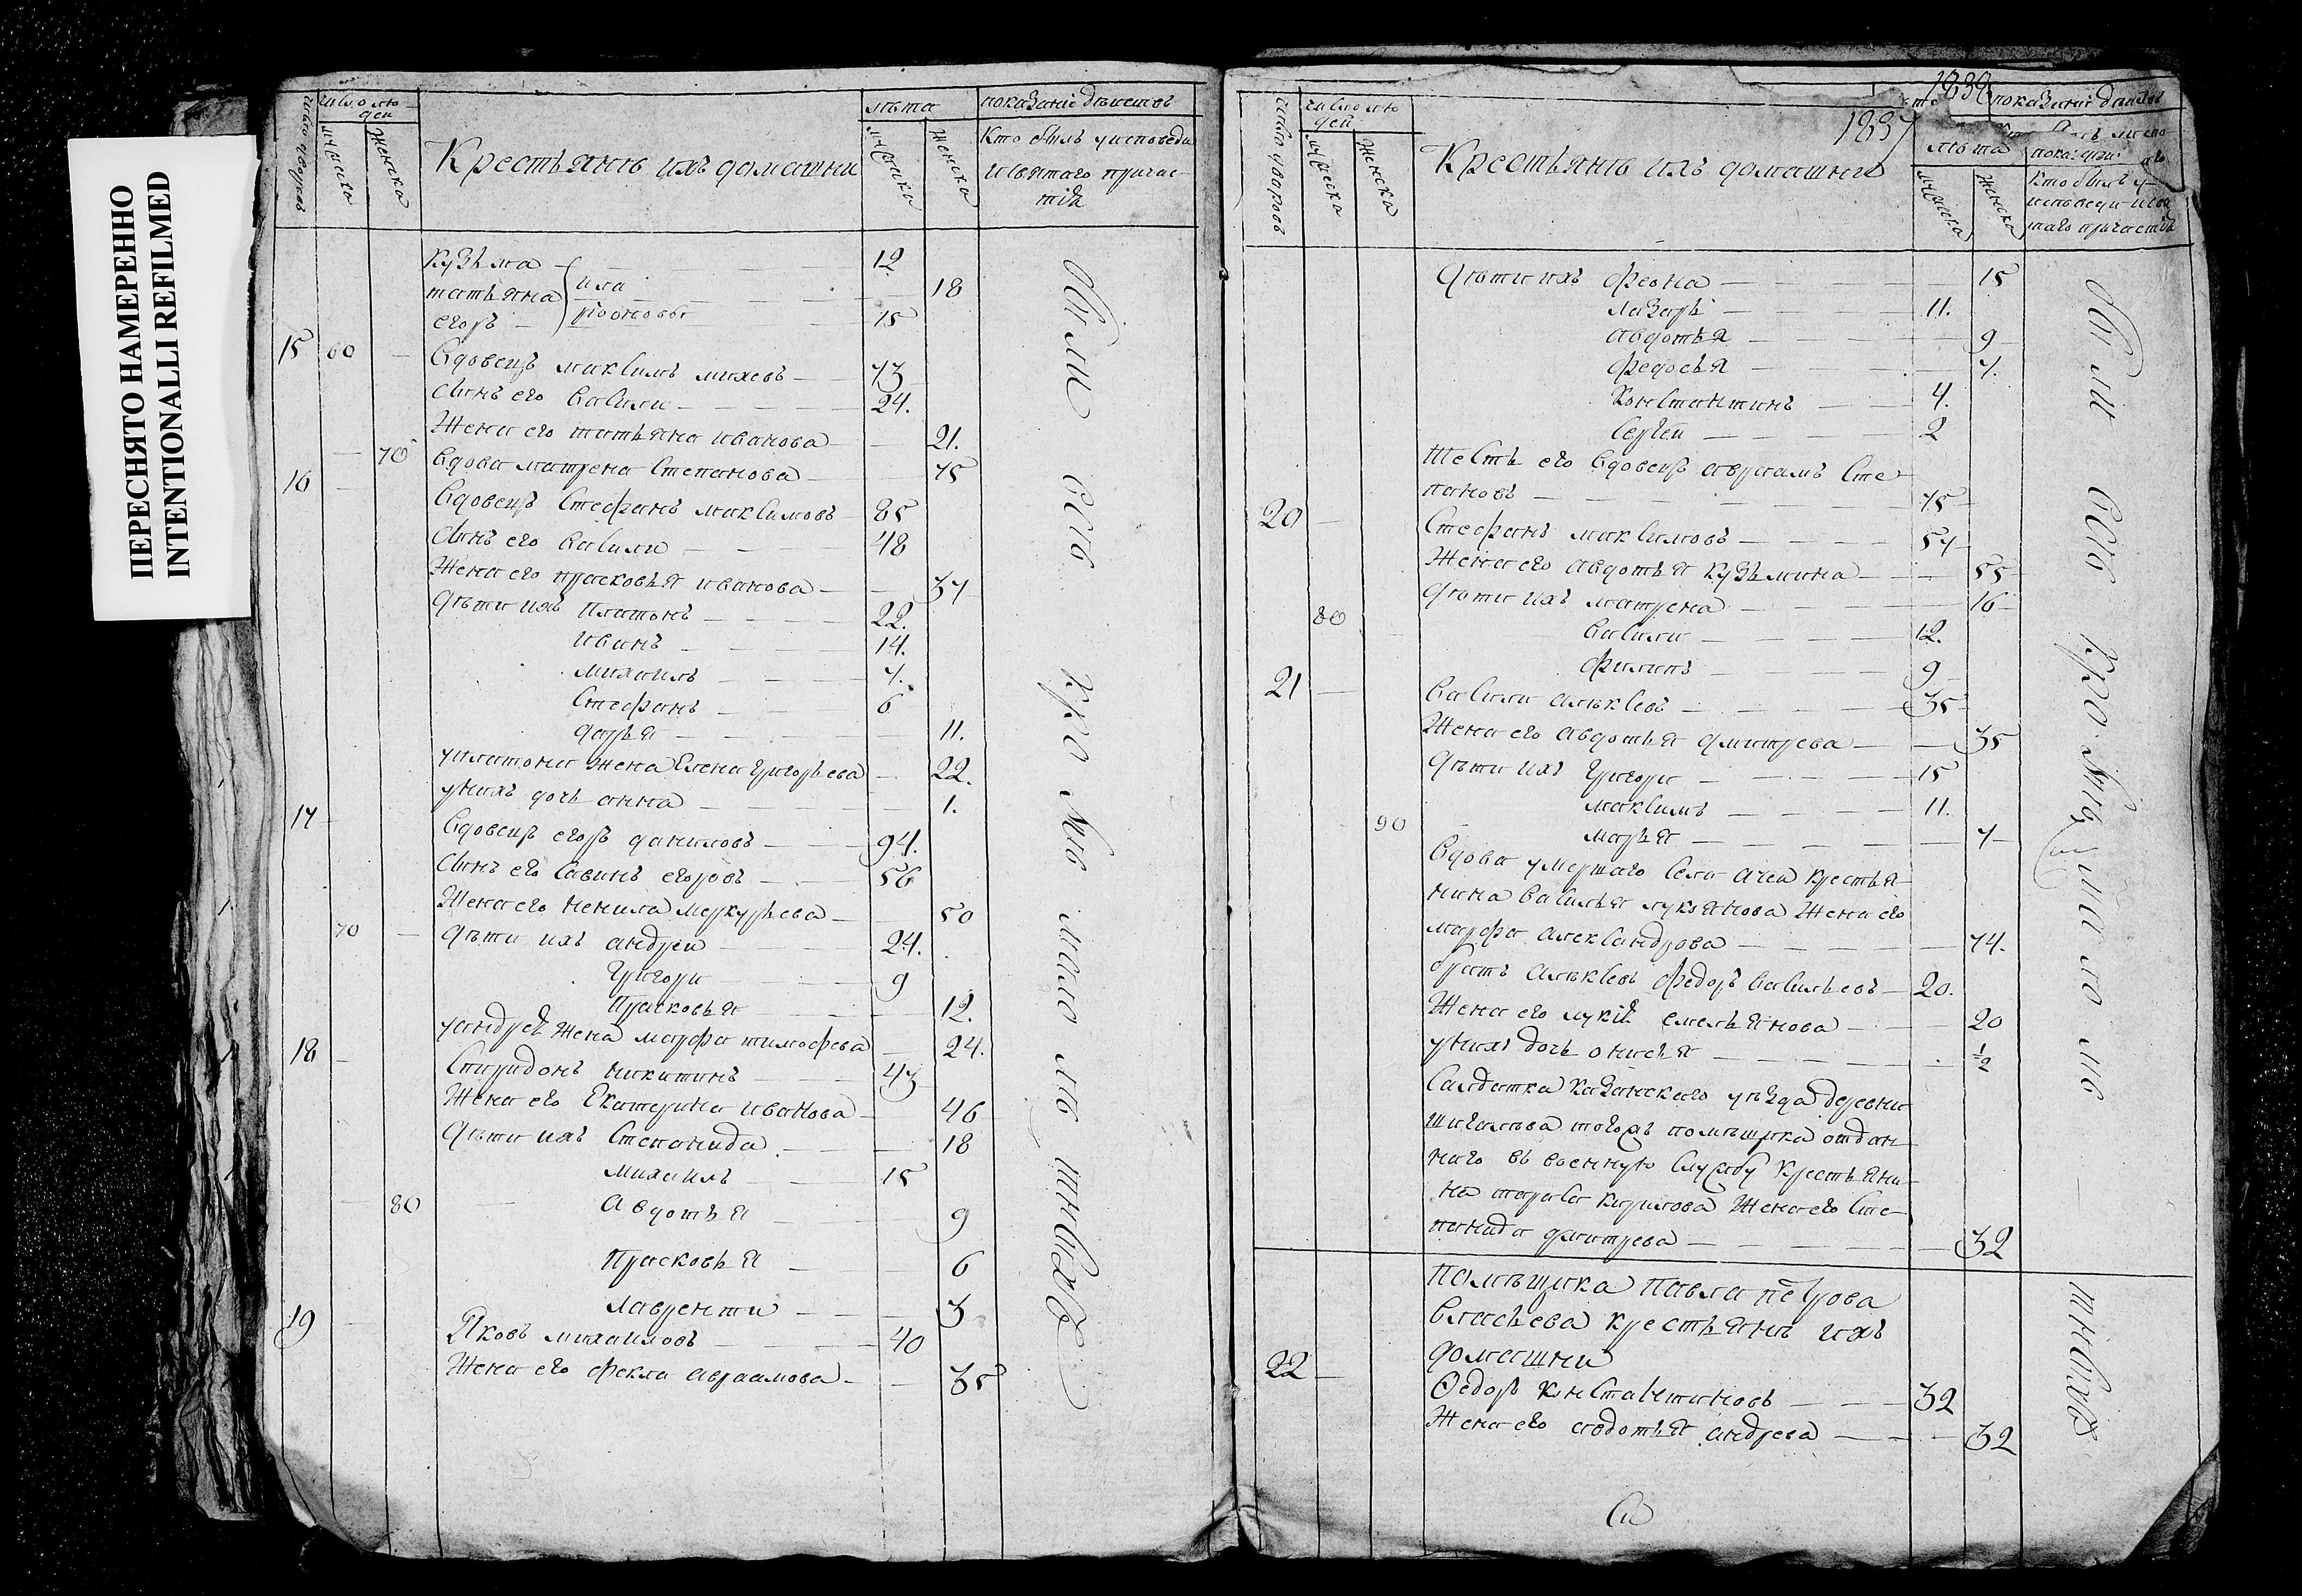 ПЕРЕСНЯТО НАМЕРЕННО
INTENTIONALLI REFILMED
Число дворовъ
число лю
дей
мужска
женска
Крестьянъ ихъ домашни
лѣта
мужска
женска
показаніе дѣиства
Кто былъ у исповеди
и святаго причас
тія
Кузьма 12
татьяна 18
егоръ 15
15 60 вдовецъ максимъ михеевъ 73
сынъ его васили 24.
Жена его татьяна иванова 21.
16 70 вдова матрена степанова 75
вдовецъ стефанъ максимовъ 85
сынъ его васили 48
Жена его прасковья иванова 37
дѣти ихъ платонъ 22.
иванъ 14.
михаилъ 7.
стефанъ 6
дарья 11.
у платона жена елена григорьева 22.
у нихъ дочь анна 1.
17 вдовецъ егоръ даниловъ 94.
сынъ его савинъ егоровъ 56
Жена его ненила меркурьева 50
70 дѣти ихъ андреи 24.
григори 9
прасковья 12.
у андрея жена марфа тимофева 24.
18 спиридонъ никитинъ 43
Жена его екатерина иванова 46
дѣти ихъ степанида 18
михаилъ 15
80 авдотья 9
прасковья 6
лаврентии 3
19 яковъ михаиловъ 40
Жена его фекла авраамова 35
были
1839
1837
Число дворовъ
число лю
дей
мужска
женска
Крестьянъ ихъ домашни
лѣта
мужска
женска
Кто былъ у
исповеди и свя
таго причастія
дѣти ихъ феона 15
лазарь 11.
авдотья 9
федосья 7.
константинъ 4.
сергеи 2
тесть его вдовецъ авраамъ сте
пановъ 75
20 стефанъ максимовъ 57
Жена его авдотья кузьмина 55
80 дѣти ихъ матрена 16
васили 12.
филипъ 9
21 васили алѣксевъ 35
Жена его авдотья дмитрева 35
дѣти ихъ григори 15
максимъ 11.
90 марья 7
вдова умершаго села ачеи крестья
нина василья лукьянова жена его
марфа александрова 74.
братъ алѣксевъ федоръ васильевъ 20.
Жена его лукія емельянова 20
у нихъ дочь онисья 1/2
салдатка казанскаго уѣзда деревни
шигалѣва тогожъ помѣщика отдан
наго въ военную службу крестьяни
на тараса кирилова жена его сте
панида дмитрева 32
помѣщика павла петрова
власьева крестьянъ ихъ
домашни
22 Ѳедоръ константиновъ 32
Жена его авдотья андрева 32
были